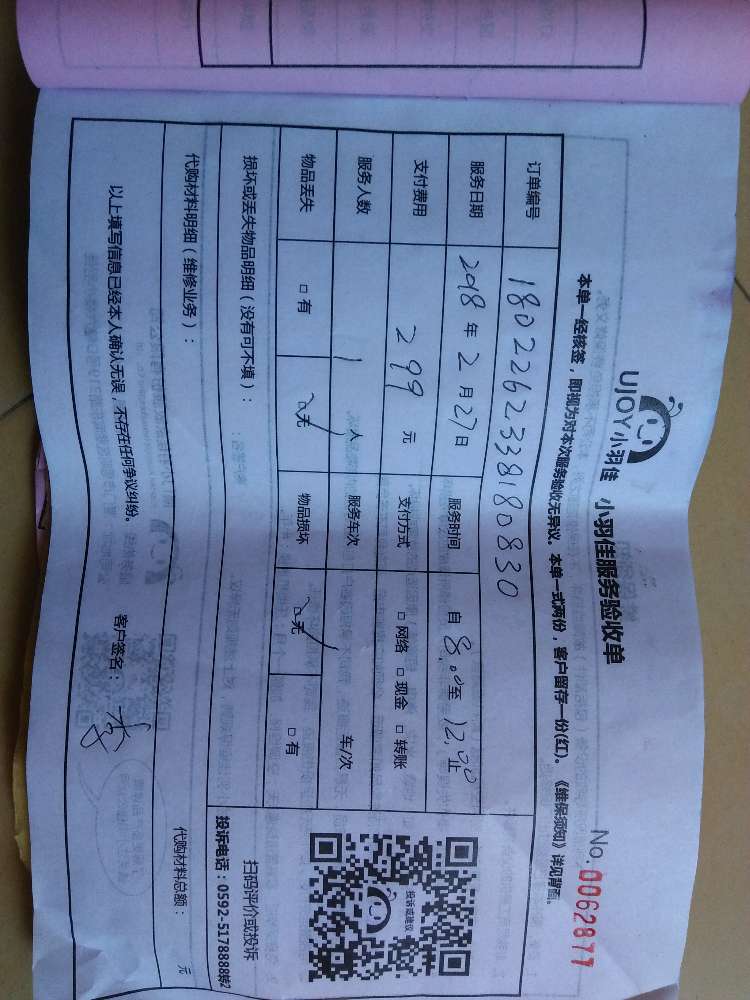 UJOY小羽佳 小羽佳服务验收单
No. 0062877
本单一经核签，即视为对本次服务验收无异议。本单一式两份，客户留存一份(红)。《维保须知》详见背面。
订单编号 1802262338180830
服务日期 2018 年 2 月 27 日 服务时间 自 8:00 至 12:00 止
支付费用 299 元 支付方式 □ 网络 □ 现金 □ 转账
服务人数 1 人 服务车次 车/次
物品丢失 □ 有 □ 无 物品损坏 □ 无 □ 有
投诉或建议
扫码评价或投诉
投诉电话：0592-5178888转2
损坏或丢失物品明细（没有可不填）：
代购材料明细（维修业务）： 代购材料总额： 元
以上填写信息已经本人确认无误，不存在任何争议纠纷。 客户签名：